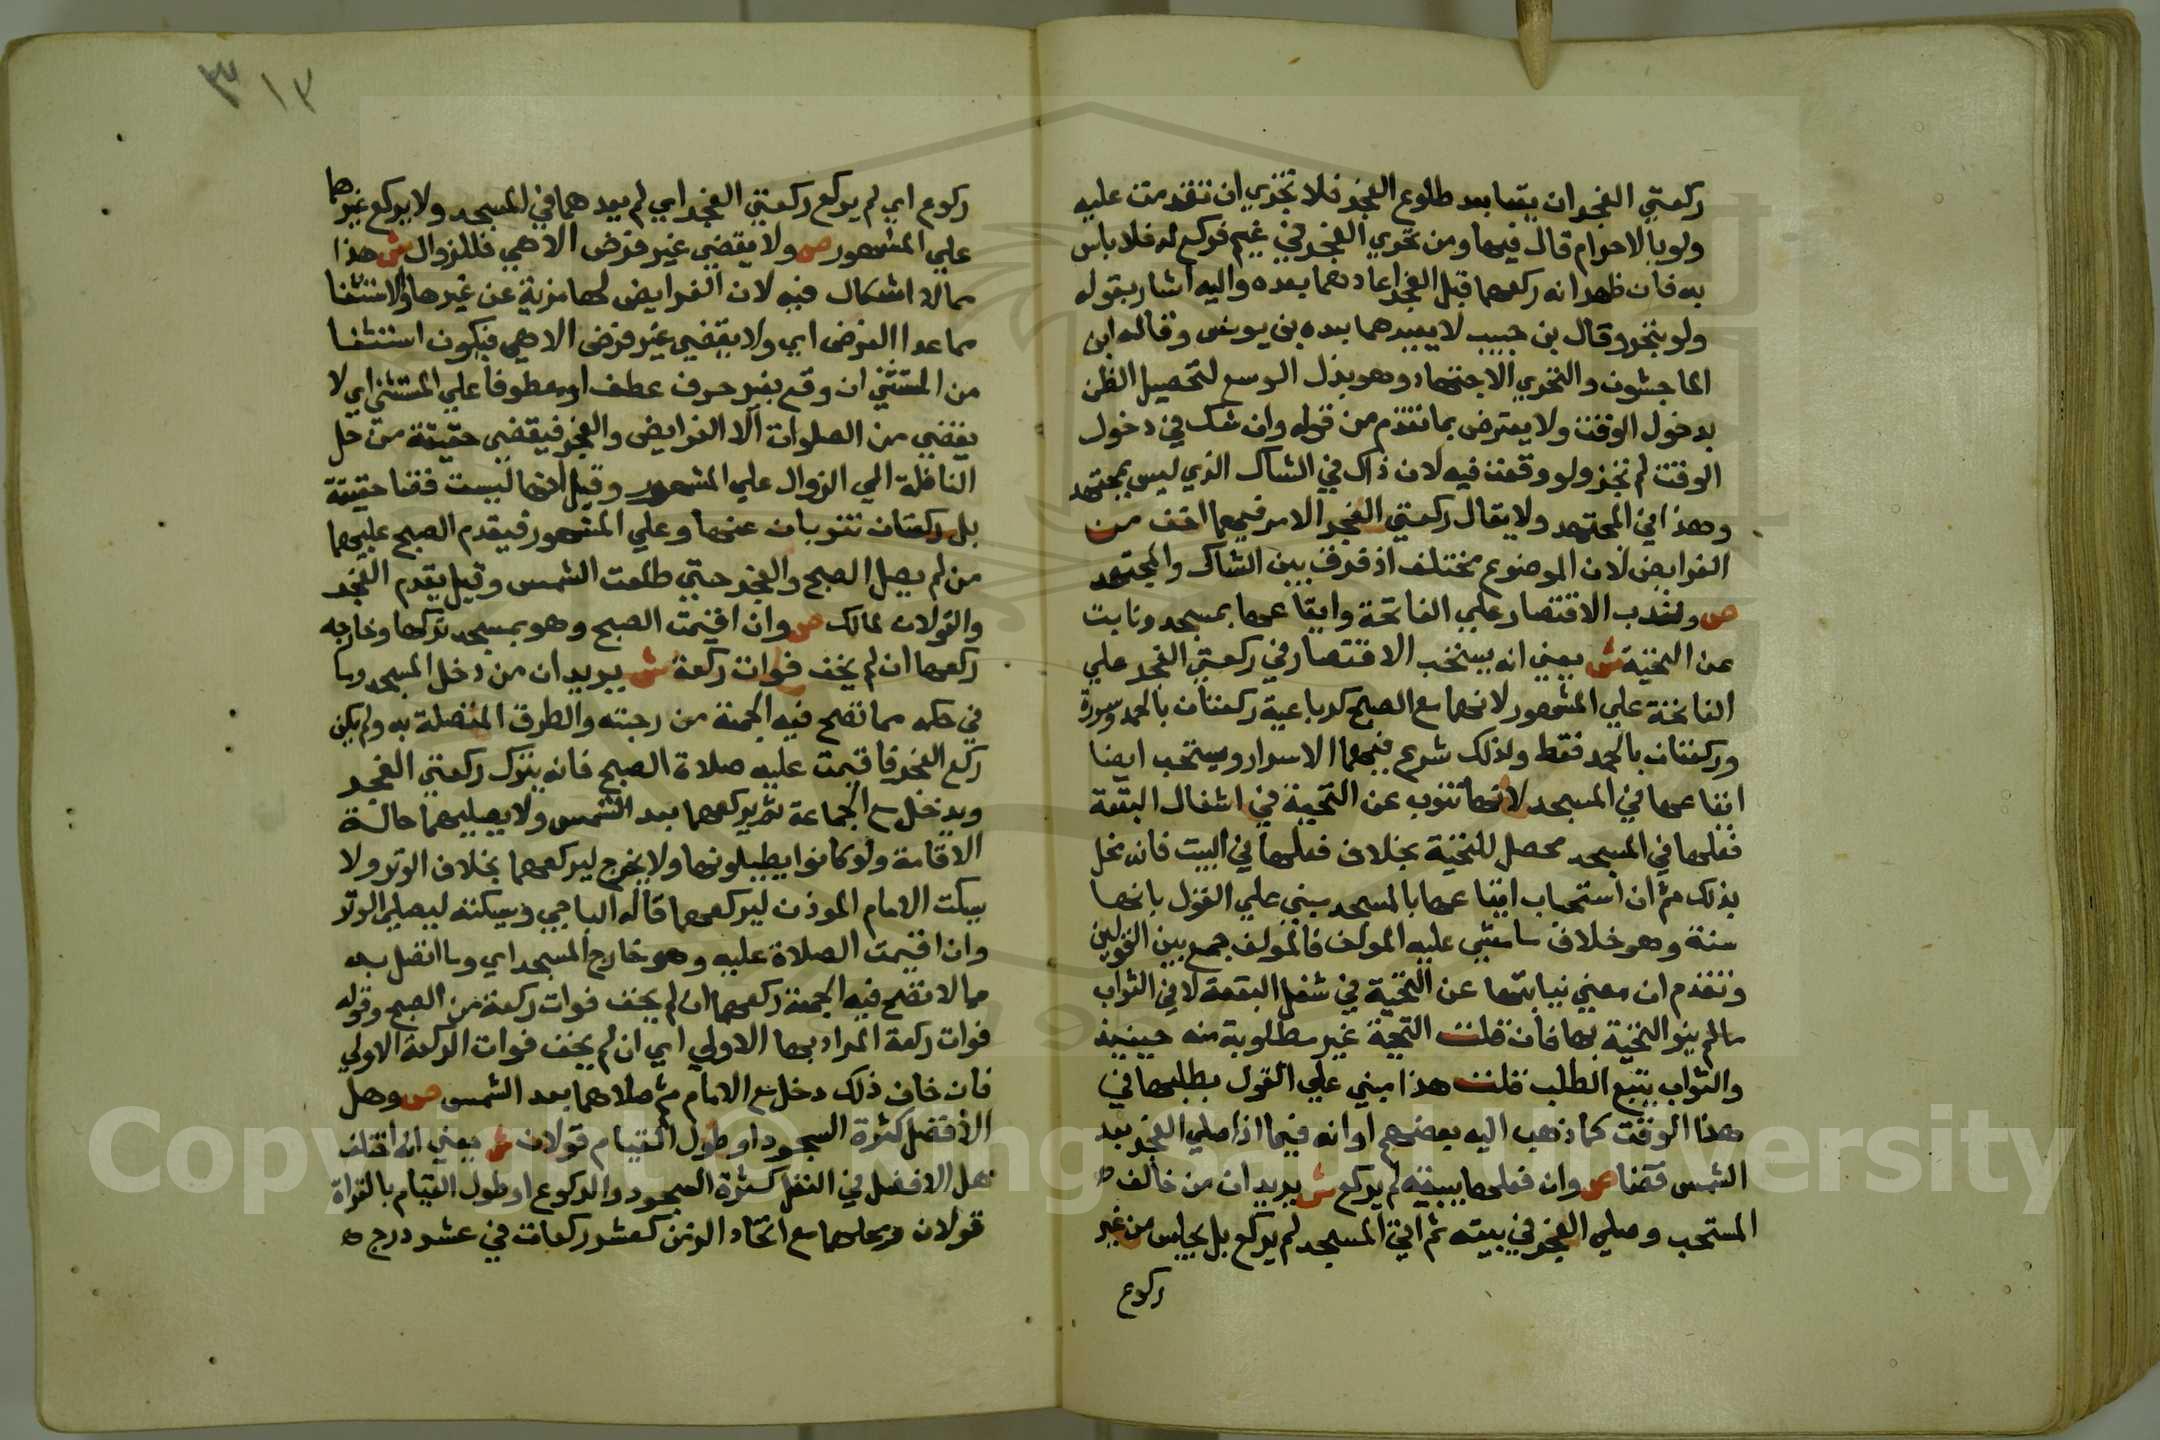 ركعتي الفجر ان يقعا بعد طلوع الفجر فلا تجزي ان تقدمت عليه
ولو بالاحرام قال فيها ومن تحري الفجر في غيم فركع له فلا باس
به فان ظهر انه ركعهما قبل الفجر اعادهما بعده واليه اشار بقوله
ولو بتحر وقال بن حبيب لا يعيدهما بعده بن يونس وقاله ابن
الماجشون والتحري الاجتهاد وهو بذل الوسع لتحصيل الظن
بدخول الوقت ولا يعترض بما تقدم من قوله وان شك في دخول
الوقت لم تجز ولو وقعت فيه لان ذاك في الشاك الذي ليس بمجتهد
وهذا في المجتهد ولا يقال ركعتي الفجر الامر فيهما اخف من
الفرايض لان الموضوع مختلف اذ فرق بين الشاك والمجتهد
ص وندب الاقتصار علي الفاتحة وايقاعها بمسجد ونابت
عن التحية ش يعني انه يستحب الاقتصار في ركعتي الفجر علي
الفاتحة علي المشهور لانهما مع الصبح كرباعية ركعتان بالحمد وسورة
وركعتان بالحمد فقط ولذلك شرع فيهما الاسرار ويستحب ايضا
ايقاعها في المسجد لانها تنوب عن التحية في اشغال البقعة
ففعلها في المسجد محصل للتحية بخلاف فعلها في البيت فانه مخل
بذلك ثم ان استحباب ايقاعها بالمسجد مبني علي القول بانها
سنة وهو خلاف ما مشي عليه المولف فالمولف جمع بين القولين
وتقدم ان معني نيابتها عن التحية في شغل البقعة لا في الثواب
ما لم ينو التحية بها فان قلت التحية غير مطلوبة منه حينيذ
والثواب يتبع الطلب قلت هذا مبني علي القول بطلبها في
هذا الوقت كما ذهب اليه بعضهم او انه فيما اذا صلي الفجر بعد
الشمس قضا ص وان فعلها ببيته لم يركع ش يريد ان من خالف
المستحب وصلي الفجر في بيته ثم اتي المسجد لم يركع بل يجلس من غير
ركوع
٣١٢
ركوع اي لم يركع ركعتي الفجر اي لم يعدهما في المسجد ولا يركع غيرهما
علي المشهور ص ولا يقضي غير فرض الا هي فللزوال ش هذا
مما لا اشكال فيه لان الفرايض لها مزية عن غيرها والاستثنا
مما عدا الفرض اي ولا يقضي غير فرض الا هي فيكون استثنا
من المستثني ان وقع بغير حرف عطف او معطوفا علي المستثني اي لا
يقضي من الصلوات الا الفرايض والفجر فيقضي حقيقة من حل
النافلة الي الزوال علي المشهور وقيل انها ليست قضا حقيقة
بل ركعتان تنوبان عنها وعلي المشهور فيقدم الصبح عليهما
من لم يصل الصبح والفجر حتي طلعت الشمس وقيل يقدم الفجر
والقولان لمالك ص وان اقيمت الصبح وهو بمسجد تركها وخارجه
ركعها ان لم يخف فوات ركعة ش يريد ان من دخل المسجد وما
في حكمه مما تصح فيه الجمعة من رحبته والطرق المتصلة به ولم يكن
ركع الفجر فاقيمت عليه صلاة الصبح فانه يترك ركعتي الفجر
ويدخل مع الجماعة ثم يركعهما بعد الشمس ولا يصليهما حالة
الاقامة ولو كانوا يطيلونها ولا يخرج ليركعهما بخلاف الوتر ولا
يسكت الامام الموذن ليركعهما قاله الباجي ويسكته ليصلي الوتر
وان اقيمت الصلاة عليه وهو خارج المسجد اي وما اتصل به
مما لا تصح فيه الجمعة ركعهما ان لم يخف فوات ركعة من الصبح وقوله
فوات ركعة المراد بها الاولي اي ان لم يخف فوات الركعة الاولي
فان خاف ذلك دخل مع الامام ثم صلاهما بعد الشمس ص وهل
الافضل كثرة السجود او طول القيام قولان ش يعني انه اختلف
هل الافضل في النفل كثرة السجود والركوع او طول القيام بالقراة
قولان ومحلهما مع اتحاد الزمن كعشر ركعات في عشر درج